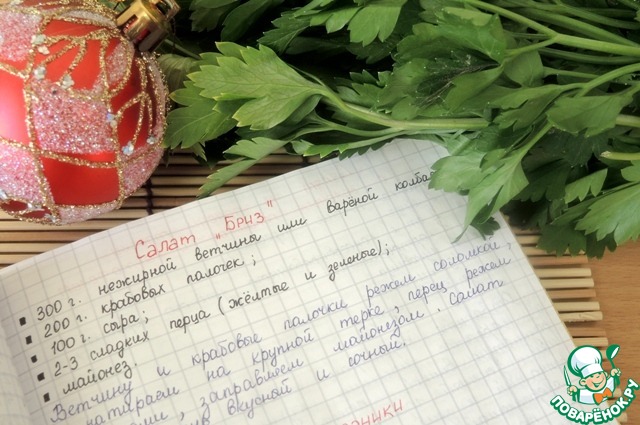 Салат "Бриз"
300 г. нежирной ветчины или варёной
200 г. крабовых палочек;
100 г. сыра;
2-3 сладких перца (жёлтые и зеленые);
майонез.
Ветчину и крабовые палочки режем соломкой,
натираем на крупной терке, перец режем
заправляем майонезом. Салат
вкусной и сочный.
ПОВАРЁНОК.РУ